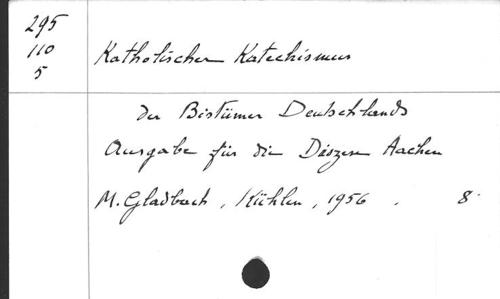 295
110
5
Katholischer Katechismus
der Bistümer Deutschlands
Ausgabe für die Diözese Aachen
M. Gladbach, Kühlen, 1956. 8°